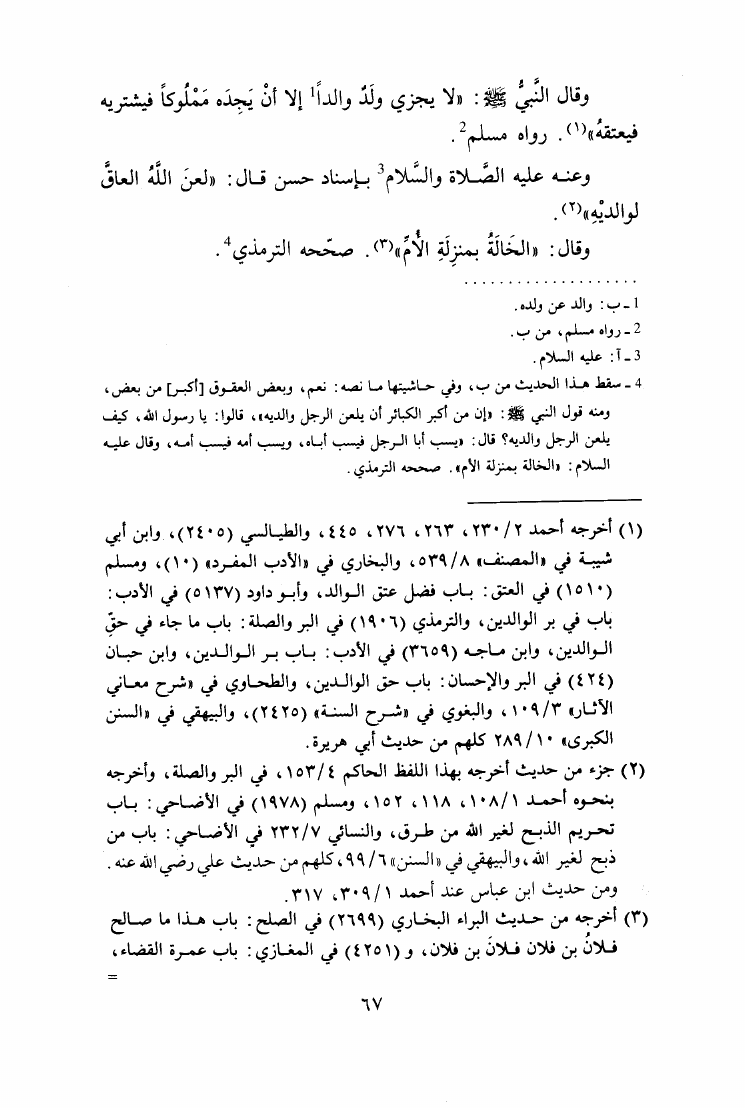 وقال النَّبيُّ ﷺ: «لا يجزي ولَدٌ والداً1 إلا أنْ يَجِدَه مَمْلُوكاً فيشتريه
فيعتقهُ»(١). رواه مسلم2.
وعنه عليه الصَّلاة والسَّلام3 بإسناد حسن قال: «لعنَ اللَّهُ العاقَّ
لوالديْهِ»(٢).
وقال: «الخَالَةُ بمنزِلَةِ الأُمِّ»(٣). صحّحه الترمذي4.
....................
1 ـ ب: والد عن ولده.
2 ـ رواه مسلم، من ب.
3 ـ آ: عليه السلام.
4 ـ سقط هذا الحديث من ب، وفي حاشيتها ما نصه: نعم، وبعض العقوق [أكبر] من بعض،
ومنه قول النبي ﷺ: «إن من أكبر الكبائر أن يلعن الرجل والديه»، قالوا: يا رسول الله، كيف
يلعن الرجل والديه؟ قال: «يسب أبا الرجل فيسب أباه، ويسب أمه فيسب أمه، وقال عليه
السلام: «الخالة بمنزلة الأم». صححه الترمذي.
(١) أخرجه أحمد ٢/ ٢٣٠، ٢٦٣، ٢٧٦، ٤٤٥، والطيالسي (٢٤٠٥)، وابن أبي
شيبة في «المصنف» ٨/ ٥٣٩، والبخاري في «الأدب المفرد» (١٠)، ومسلم
(١٥١٠) في العتق: باب فضل عتق الوالد، وأبو داود (٥١٣٧) في الأدب:
باب في بر الوالدين، والترمذي (١٩٠٦) في البر والصلة: باب ما جاء في حقّ
الوالدين، وابن ماجه (٣٦٥٩) في الأدب: باب بر الوالدين، وابن حبان
(٤٢٤) في البر والإحسان: باب حق الوالدين، والطحاوي في «شرح معاني
الآثار» ٣/ ١٠٩، والبغوي في «شرح السنة» (٢٤٢٥)، والبيهقي في «السنن
الكبرى» ١٠/ ٢٨٩ كلهم من حديث أبي هريرة.
(٢) جزء من حديث أخرجه بهذا اللفظ الحاكم ٤/ ١٥٣، في البر والصلة، وأخرجه
بنحوه أحمد ١/ ١٠٨، ١١٨، ١٥٢، ومسلم (١٩٧٨) في الأضاحي: باب
تحريم الذبح لغير الله من طرق، والنسائي ٧/ ٢٣٢ في الأضاحي: باب من
ذبح لغير الله، والبيهقي في «السنن» ٦/ ٩٩، كلهم من حديث علي رضي الله عنه.
ومن حديث ابن عباس عند أحمد ١/ ٣٠٩، ٣١٧.
(٣) أخرجه من حديث البراء البخاري (٢٦٩٩) في الصلح: باب هذا ما صالح
فلانُ بن فلان فلانَ بن فلان، و (٤٢٥١) في المغازي: باب عمرة القضاء،
=
٦٧